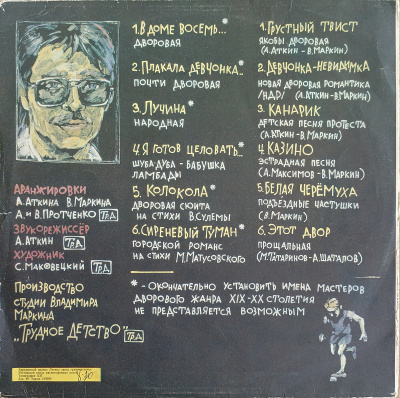 1. В ДОМЕ ВОСЕМЬ...*
ДВОРОВАЯ
2. ПЛАКАЛА ДЕВЧОНКА..*
ПОЧТИ ДВОРОВАЯ
3. ЛУЧИНА*
НАРОДНАЯ
4. Я ГОТОВ ЦЕЛОВАТЬ..*
ШУБА ДУБА - БАБУШКА
ЛАМБАДЫ
5. КОЛОКОЛА*
ДВОРОВАЯ СЮИТА
НА СТИХИ В. СУЛЕМЫ
6. СИРЕНЕВЫЙ ТУМАН*
ГОРОДСКОЙ РОМАНС
НА СТИХИ М. МАТУСОВСКОГО
1. ГРУСТНЫЙ ТВИСТ
ЯКОБЫ ДВОРОВАЯ
(А. АТКИН - В. МАРКИН)
2. ДЕВЧОНКА-НЕВИДИМКА
НОВАЯ ДВОРОВАЯ РОМАНТИКА
/НДР/ (А. АТКИН - В. МАРКИН)
3. КАНАРИК
ДЕТСКАЯ ПЕСНЯ ПРОТЕСТА
(А. АТКИН - В. МАРКИН)
4. КАЗИНО
ЭСТРАДНАЯ ПЕСНЯ
(А. МАКСИМОВ - В. МАРКИН)
5. БЕЛАЯ ЧЕРЁМУХА
ПОДЪЕЗДНЫЕ ЧАСТУШКИ
(В. МАРКИН)
6. ЭТОТ ДВОР
ПРОЩАЛЬНАЯ
(М. ТАТАРИНОВ - А. ШАТАЛОВ)
АРАНЖИРОВКИ
А. АТКИНА В. МАРКИНА
А. и В. ПРОТЧЕНКО Тр.Д
ЗВУКОРЕЖИССЁР
А. АТКИН Тр.Д
ХУДОЖНИК
С. МАКОВЕЦКИЙ Тр.Д
ПРОИЗВОДСТВО
СТУДИИ ВЛАДИМИРА
МАРКИНА
„ТРУДНОЕ ДЕТСТВО" Тр.Д
* - ОКОНЧАТЕЛЬНО УСТАНОВИТЬ ИМЕНА МАСТЕРОВ
ДВОРОВОГО ЖАНРА XIX-XX СТОЛЕТИЯ
НЕ ПРЕДСТАВЛЯЕТСЯ ВОЗМОЖНЫМ